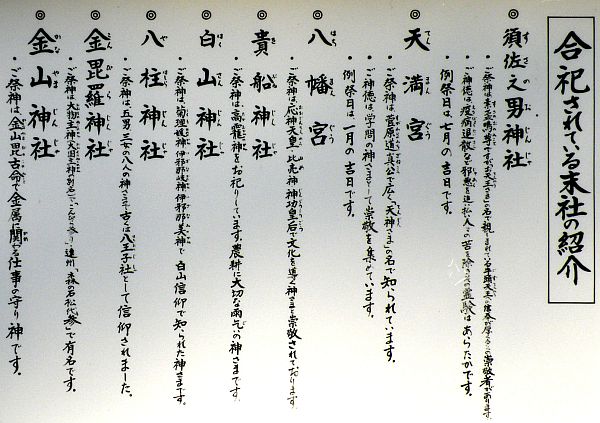 合祀されている末社の紹介
◎須佐之男神社
◎天満宮
・ご祭神は、菅原道真公で広く「天神さま」の名で知られています。
・ご神徳は、学問の神さまとして崇敬を集めています。
・例祭日は、一月の吉日です。
◎八幡宮
・ご祭神は、応神天皇、比売神、神功皇后で文化を導く神さまと崇敬されております。
◎貴船神社
・ご祭神は、高龗神をお祀りしています。農耕に大切な雨乞いの神さまです。
◎白山神社
・ご祭神は、菊理媛神、伊邪那岐神、伊邪那美神で白山信仰で知られた神さまです。
◎八柱神社
・ご祭神は、五男三女の八人の神さまで古くは八王子社として信仰されました。
◎金毘羅神社
・ご祭神は、大物主神で遠州「森の石松代参」で有名です。
◎金山神社
・ご祭神は、金山毘古命で金属に関わる仕事の守り神です。
・例祭日は、七月の吉日です。